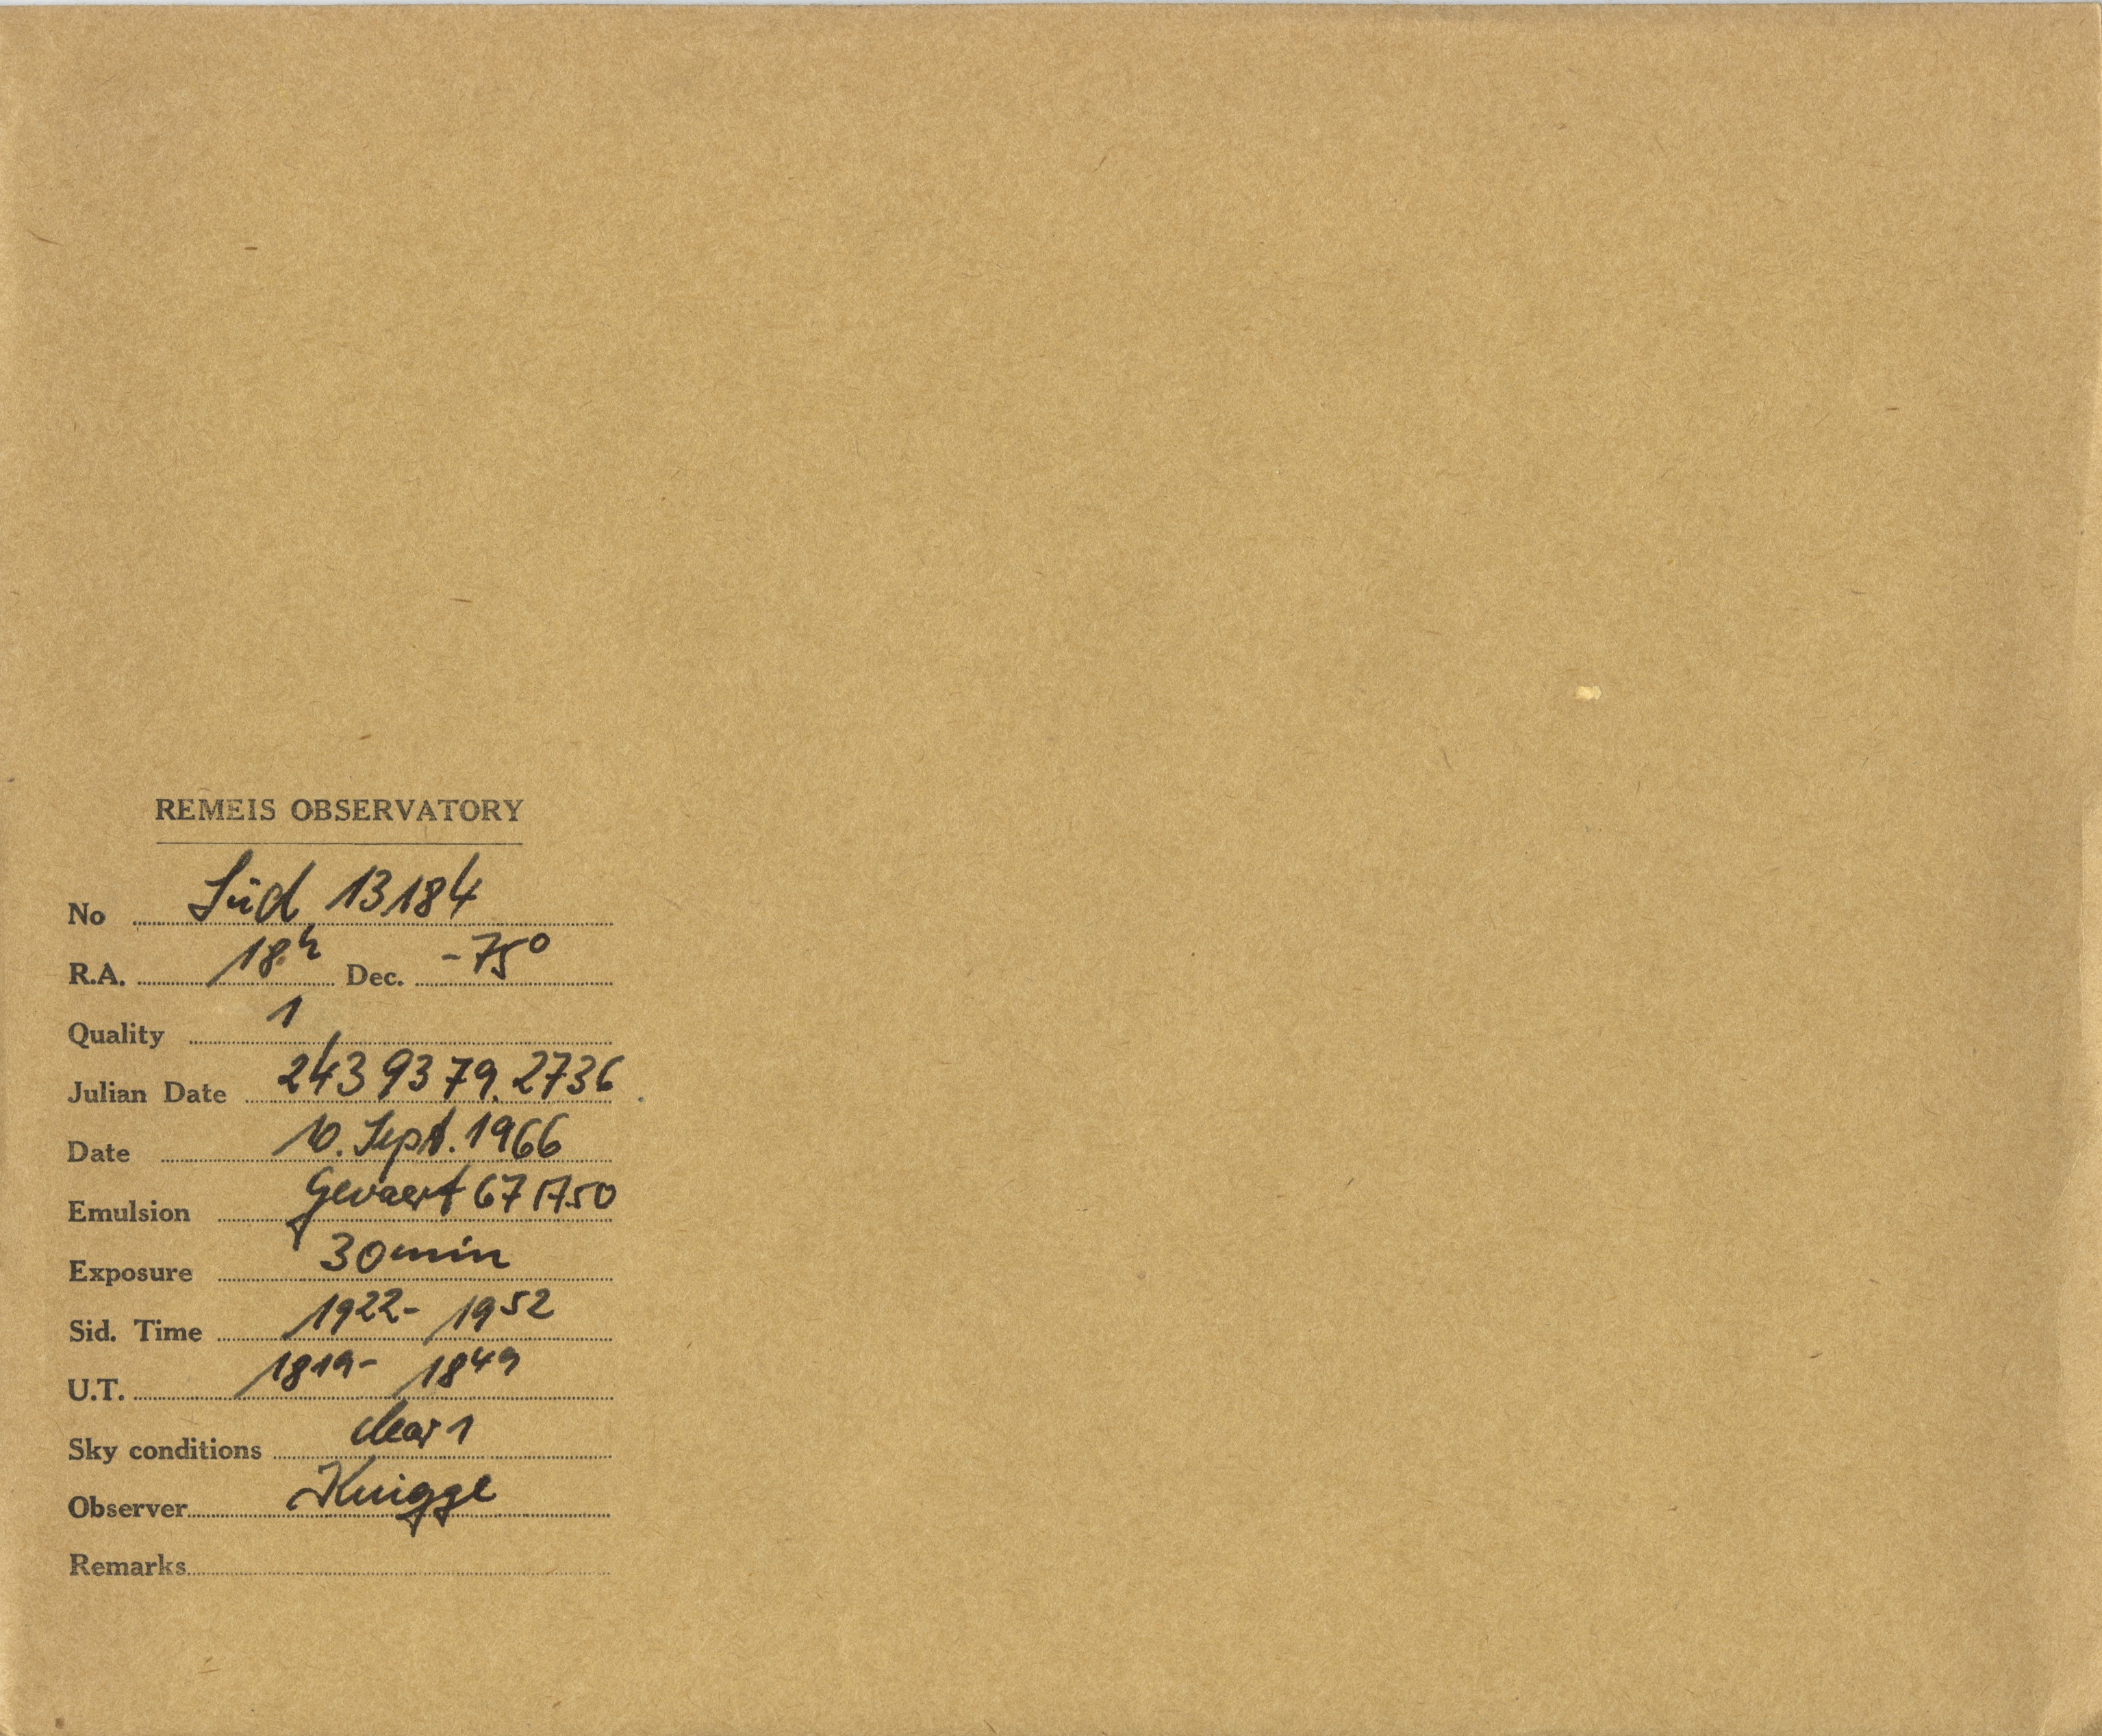 REMEIS OBSERVATORY
No Süd 13184
R.A. 18h Dec. -75°
Quality 1
Julian Date 2439379.2736
Date 10. Sept. 1966
Emulsion Gevaert 67 A 50
Exposure 30min
Sid. Time 19 22 - 19 52
U.T. 18 19 - 18 49
Sky conditions clear 1
Observer Knigge
Remarks